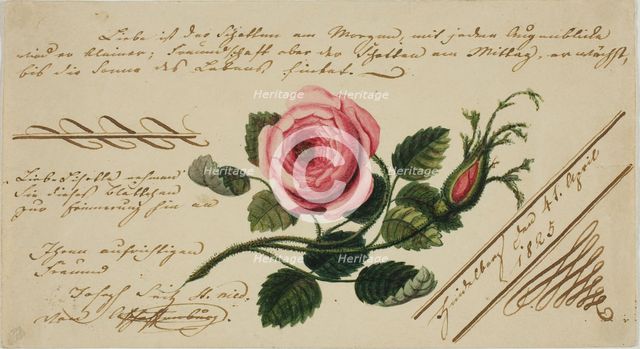 Liebe ist der Schatten am Morgen, mit jedem Augenblicke
wird er kleiner; Freundschaft aber der Schatten am Mittag, er wächst,
bis die Sonne des Lebens sinket.
Liebe
Sie dieses Blättchen
zur Erinnerung hin an
Ihren aufrichtigen
Freund
Joseph
von Aschaffenburg.
Heidelberg den 4t. April
1825
Heritage
Heritage
Heritage
Heritage
Heritage
Heritage